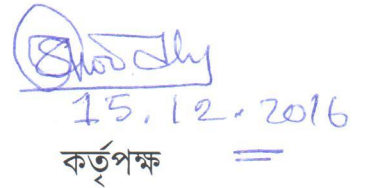 15.12.2016
কর্তৃপক্ষ